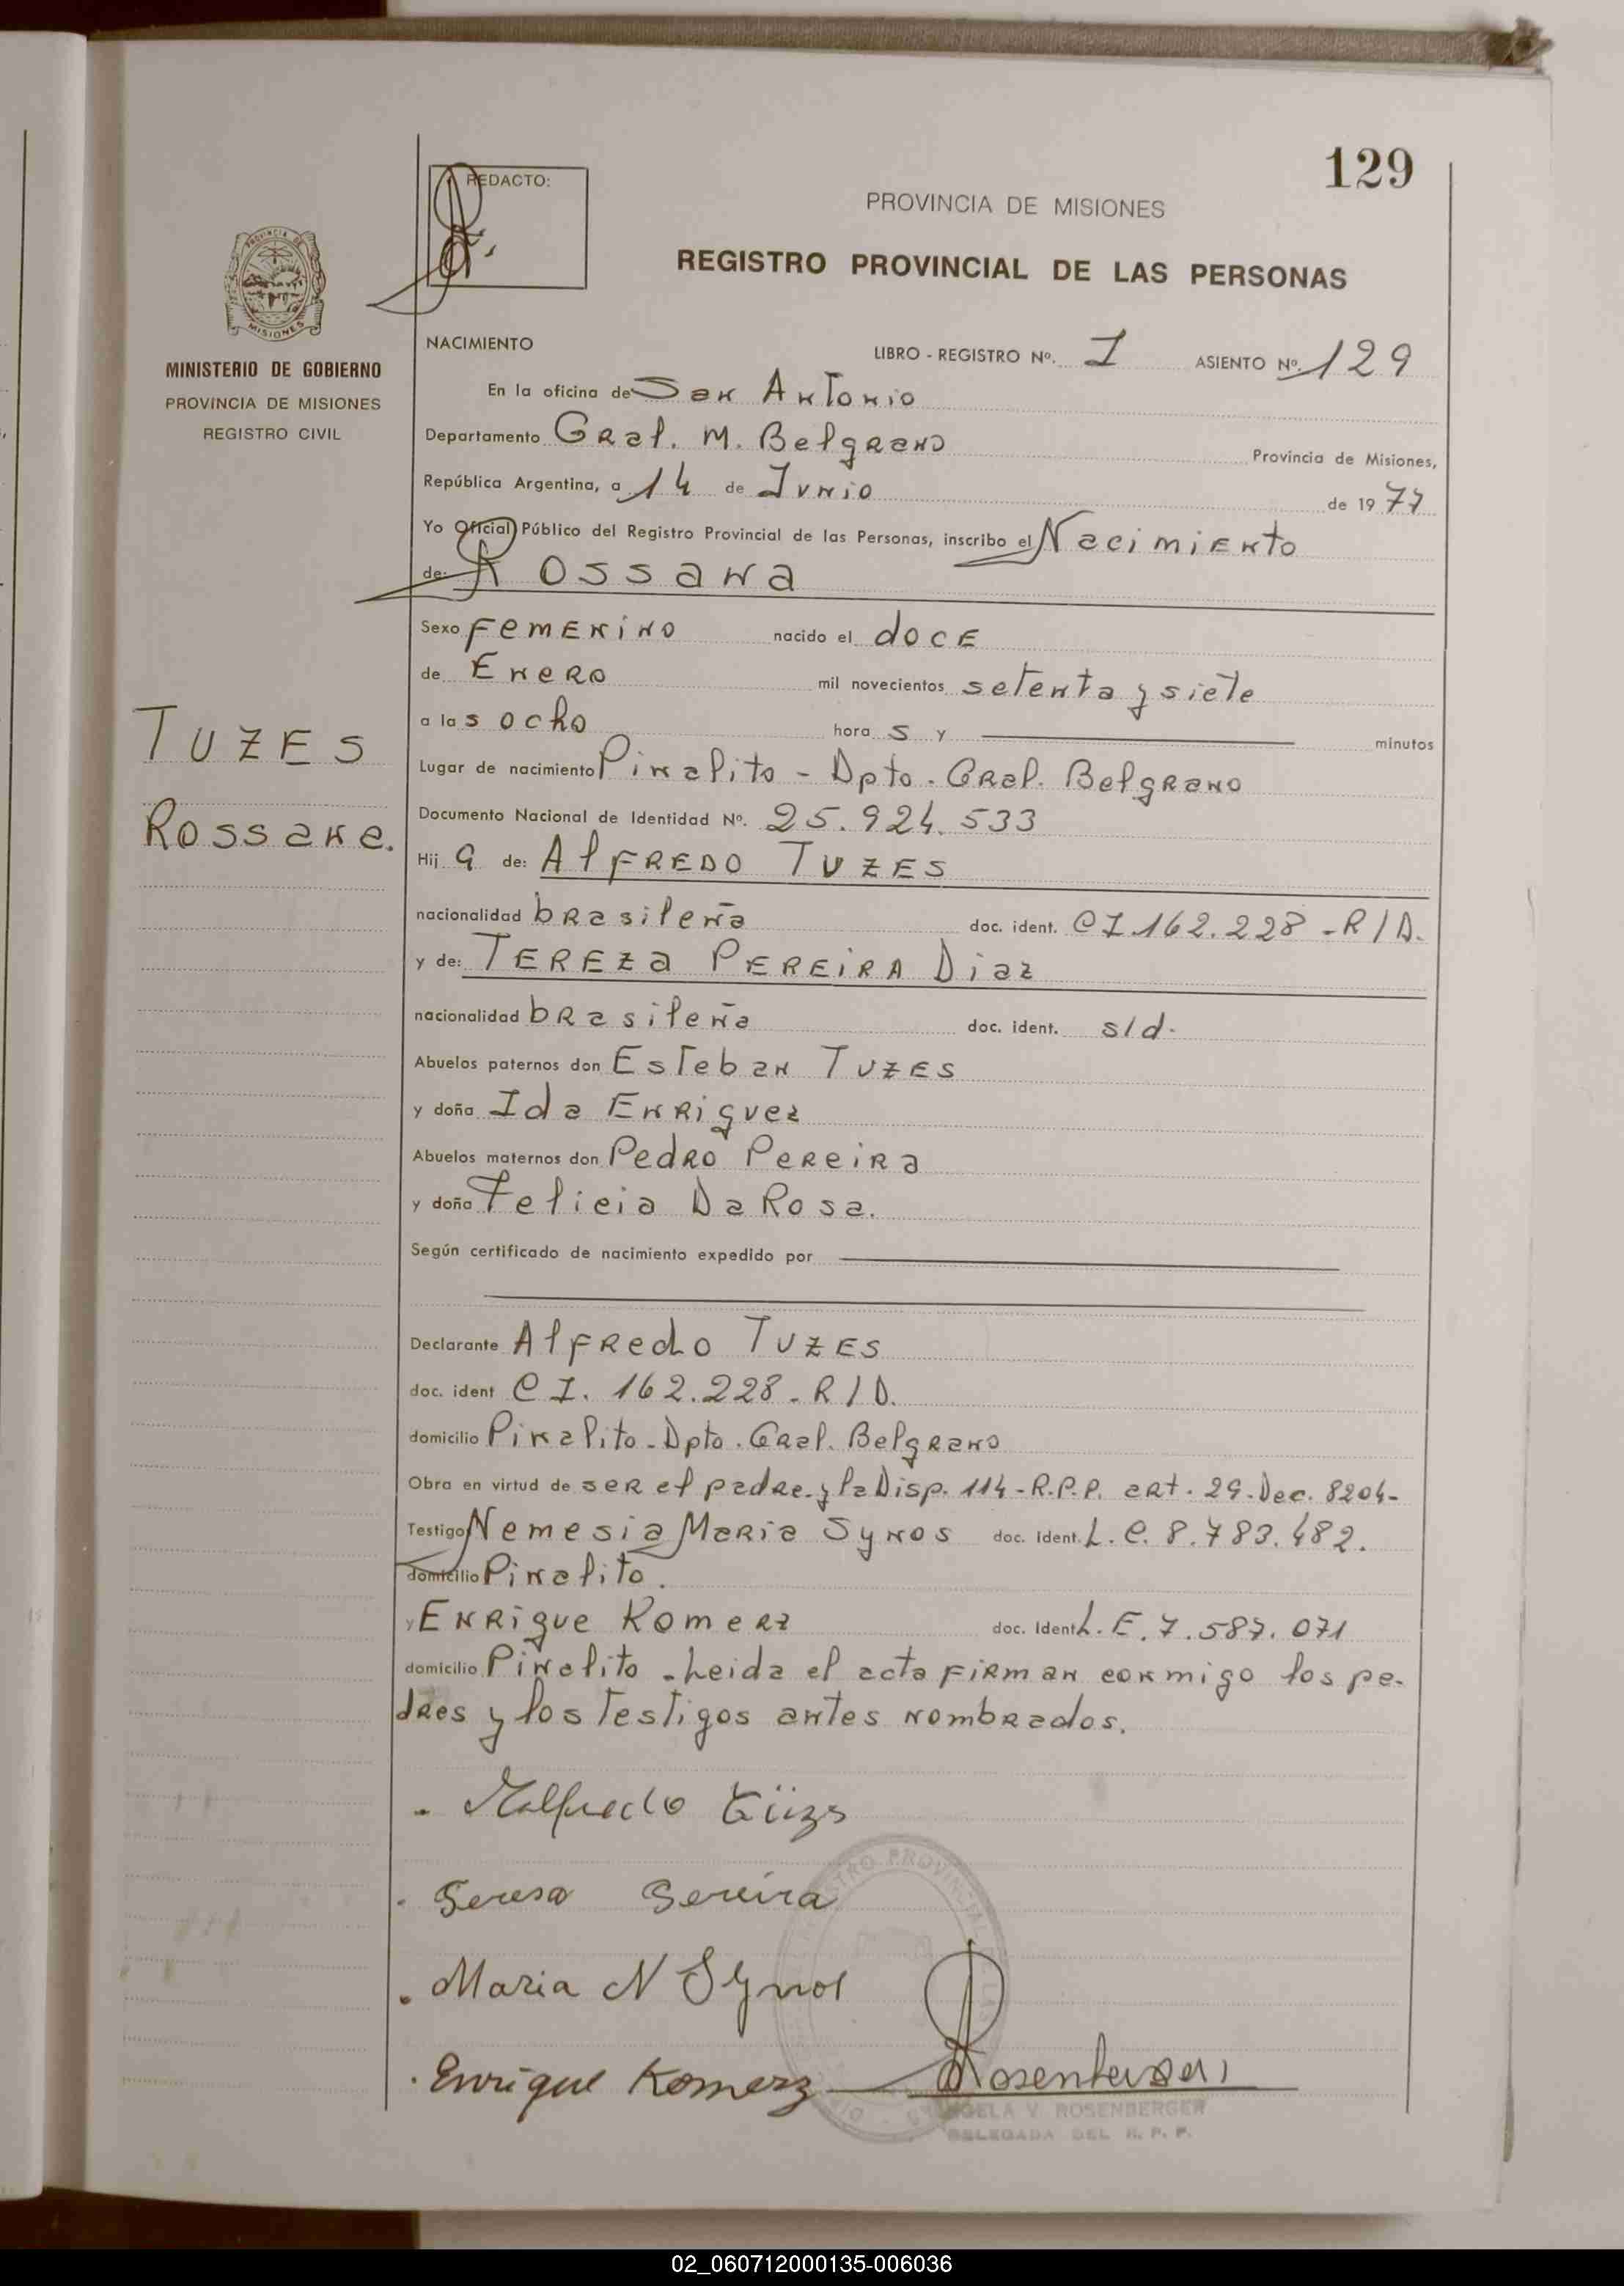 129
REDACTO:
PROVINCIA DE MISIONES
REGISTRO PROVINCIAL DE LAS PERSONAS
PROVINCIA DE
MISIONES
MINISTERIO DE GOBIERNO
PROVINCIA DE MISIONES
REGISTRO CIVIL
NACIMIENTO
LIBRO - REGISTRO Nº. I ASIENTO Nº. 129
En la oficina de San Antonio
Departamento Gral. M. Belgrano Provincia de Misiones,
República Argentina, a 14 de Junio de 1977
Yo Oficial Público del Registro Provincial de las Personas, inscribo el Nacimiento
de: Rossana
Sexo Femenino nacido el doce
de Enero mil novecientos setenta y siete
a las ocho horas y ——— minutos
TUZES
Rossana.
Lugar de nacimiento Pinalito - Dpto. Gral. Belgrano
Documento Nacional de Identidad Nº. 25.924.533
Hija de: Alfredo TUZES
nacionalidad brasileña doc. ident. CI.162.228 - R/D.
y de: TEREZa PEREIRA Diaz
nacionalidad brasileña doc. ident. s/d.
Abuelos paternos don Esteban TUZES
y doña Ida Enriquez
Abuelos maternos don Pedro Pereira
y doña Felicia Da Rosa.
Según certificado de nacimiento expedido por ———
Declarante Alfredo TUZES
doc. ident CI. 162.228 - R/D.
domicilio Pinalito - Dpto. Gral. Belgrano
Obra en virtud de ser el padre y la Disp. 114 - R.P.P. art. 29 - Dec. 8204-
Testigo Nemesia Maria Synos doc. Ident. L.C. 8.783.482.
domicilio Pinalito.
y Enrique Komerz doc. Ident L.E. 7.587.071
domicilio Pinalito - Leida el acta firman conmigo los pa-
dres y los testigos antes nombrados.
Malfredo Tüzs
Teresa Pereira
Maria N Synos
Enrique Komerz
REGISTRO PROVINCIAL
ANGELA V ROSENBERGER
DELEGADA DEL R. P. P.
02_060712000135-006036